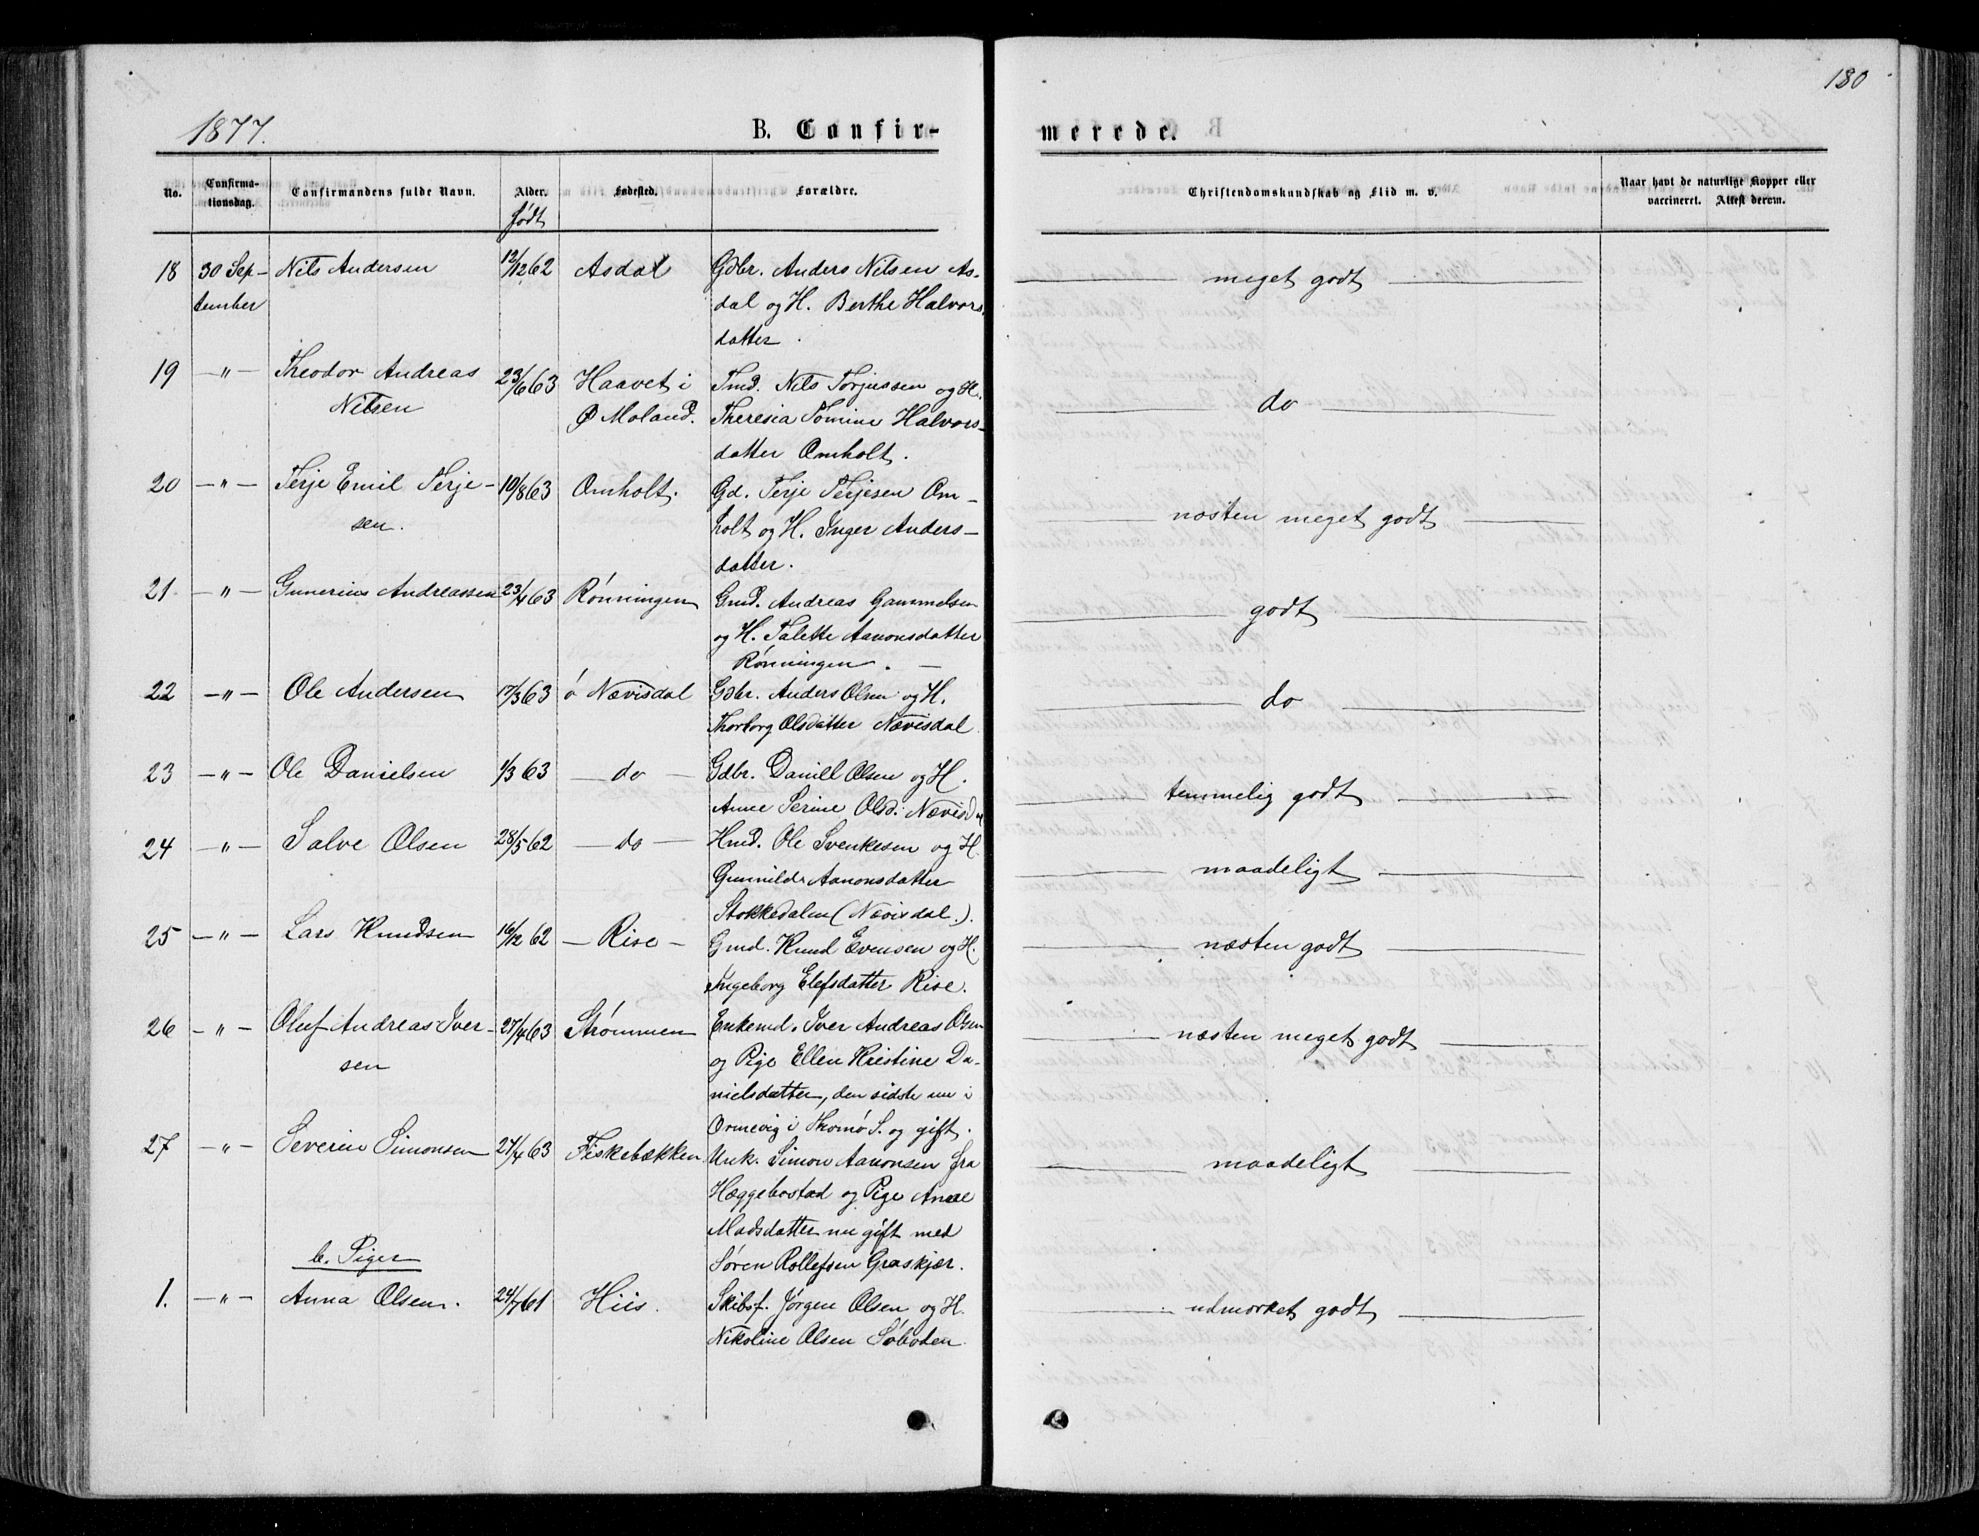 180
1877.
B. Confir-
merede.
No.
Confirma-
tionsdag.
Confirmandens fulde Navn.
Alder.
født
Fødested.
Forældre.
Christendomskundskab og Flid m. v.
Naar havt de naturlige Kopper eller
vaccineret. Attest derom.
18 30 Sep- Nils Andersen 12/12 62 Asdal Gdbr. Anders Nilsen As- meget godt
tember dal og H. Berthe Halvors-
datter.
19 —"— Theodor Andreas 23/6 63 Haavet i Tmd. Nils Torjussen og H. do
Nilsen Ø Moland. Theresia Tomine Halvors-
datter Omholt.
20 —"— Terje Emil Terje- 10/8 63 Omholt. Gd. Terje Terjesen Om- næsten meget godt
sen. holt og H. Inger Anders-
datter.
21 —"— Gunerius Andreassen 23/4 63 Rønningen Gmd. Andreas Gammelsen godt
og H. Talette Aanonsdatter
Rønningen.
22 —"— Ole Andersen 17/3 63 ó Nævisdal Gdbr. Anders Olsen og H. do
Thorborg Olsdatter Nævisdal
23 —"— Ole Danielsen 1/3 63 — do — Gdbr. Daniell Olsen og H. temmelig godt
Anne Serine Olsd. Nævisd
24 —"— Salve Olsen 28/5 62 — do — Hmd. Ole Svenkesen og H. maadeligt
Gunnilde Aanonsdatter
Stokkedalen (Nævisdal.).
25 —"— Lars Knudsen 16/12 62 — Rise — Gmd. Knud Evensen og H. næsten godt
Ingeborg Elefsdatter Rise.
26 —"— Oluf Andreas Iver- 27/4 63 Strømmen Enkemd. Iver Andreas Olsen næsten meget godt
sen og Pige Ellen Kristine Da-
nielsdatter, den sidste nu i
Ormevig i Thromø S. og gift.
27 —"— Severin Simonsen 27/4 63 Fiskebækken Unk. Simon Aanonsen fra maadeligt
Hæggebostad og Pige Anne
Madsdatter nu gift med
Søren Rollefsen Graskjær.
b. Piger
1. —"— Anna Olsen. 24/7 61 Hiis. Skibsf. Jørgen Olsen og H. udmærket godt
Nikoline Olsen Søboden